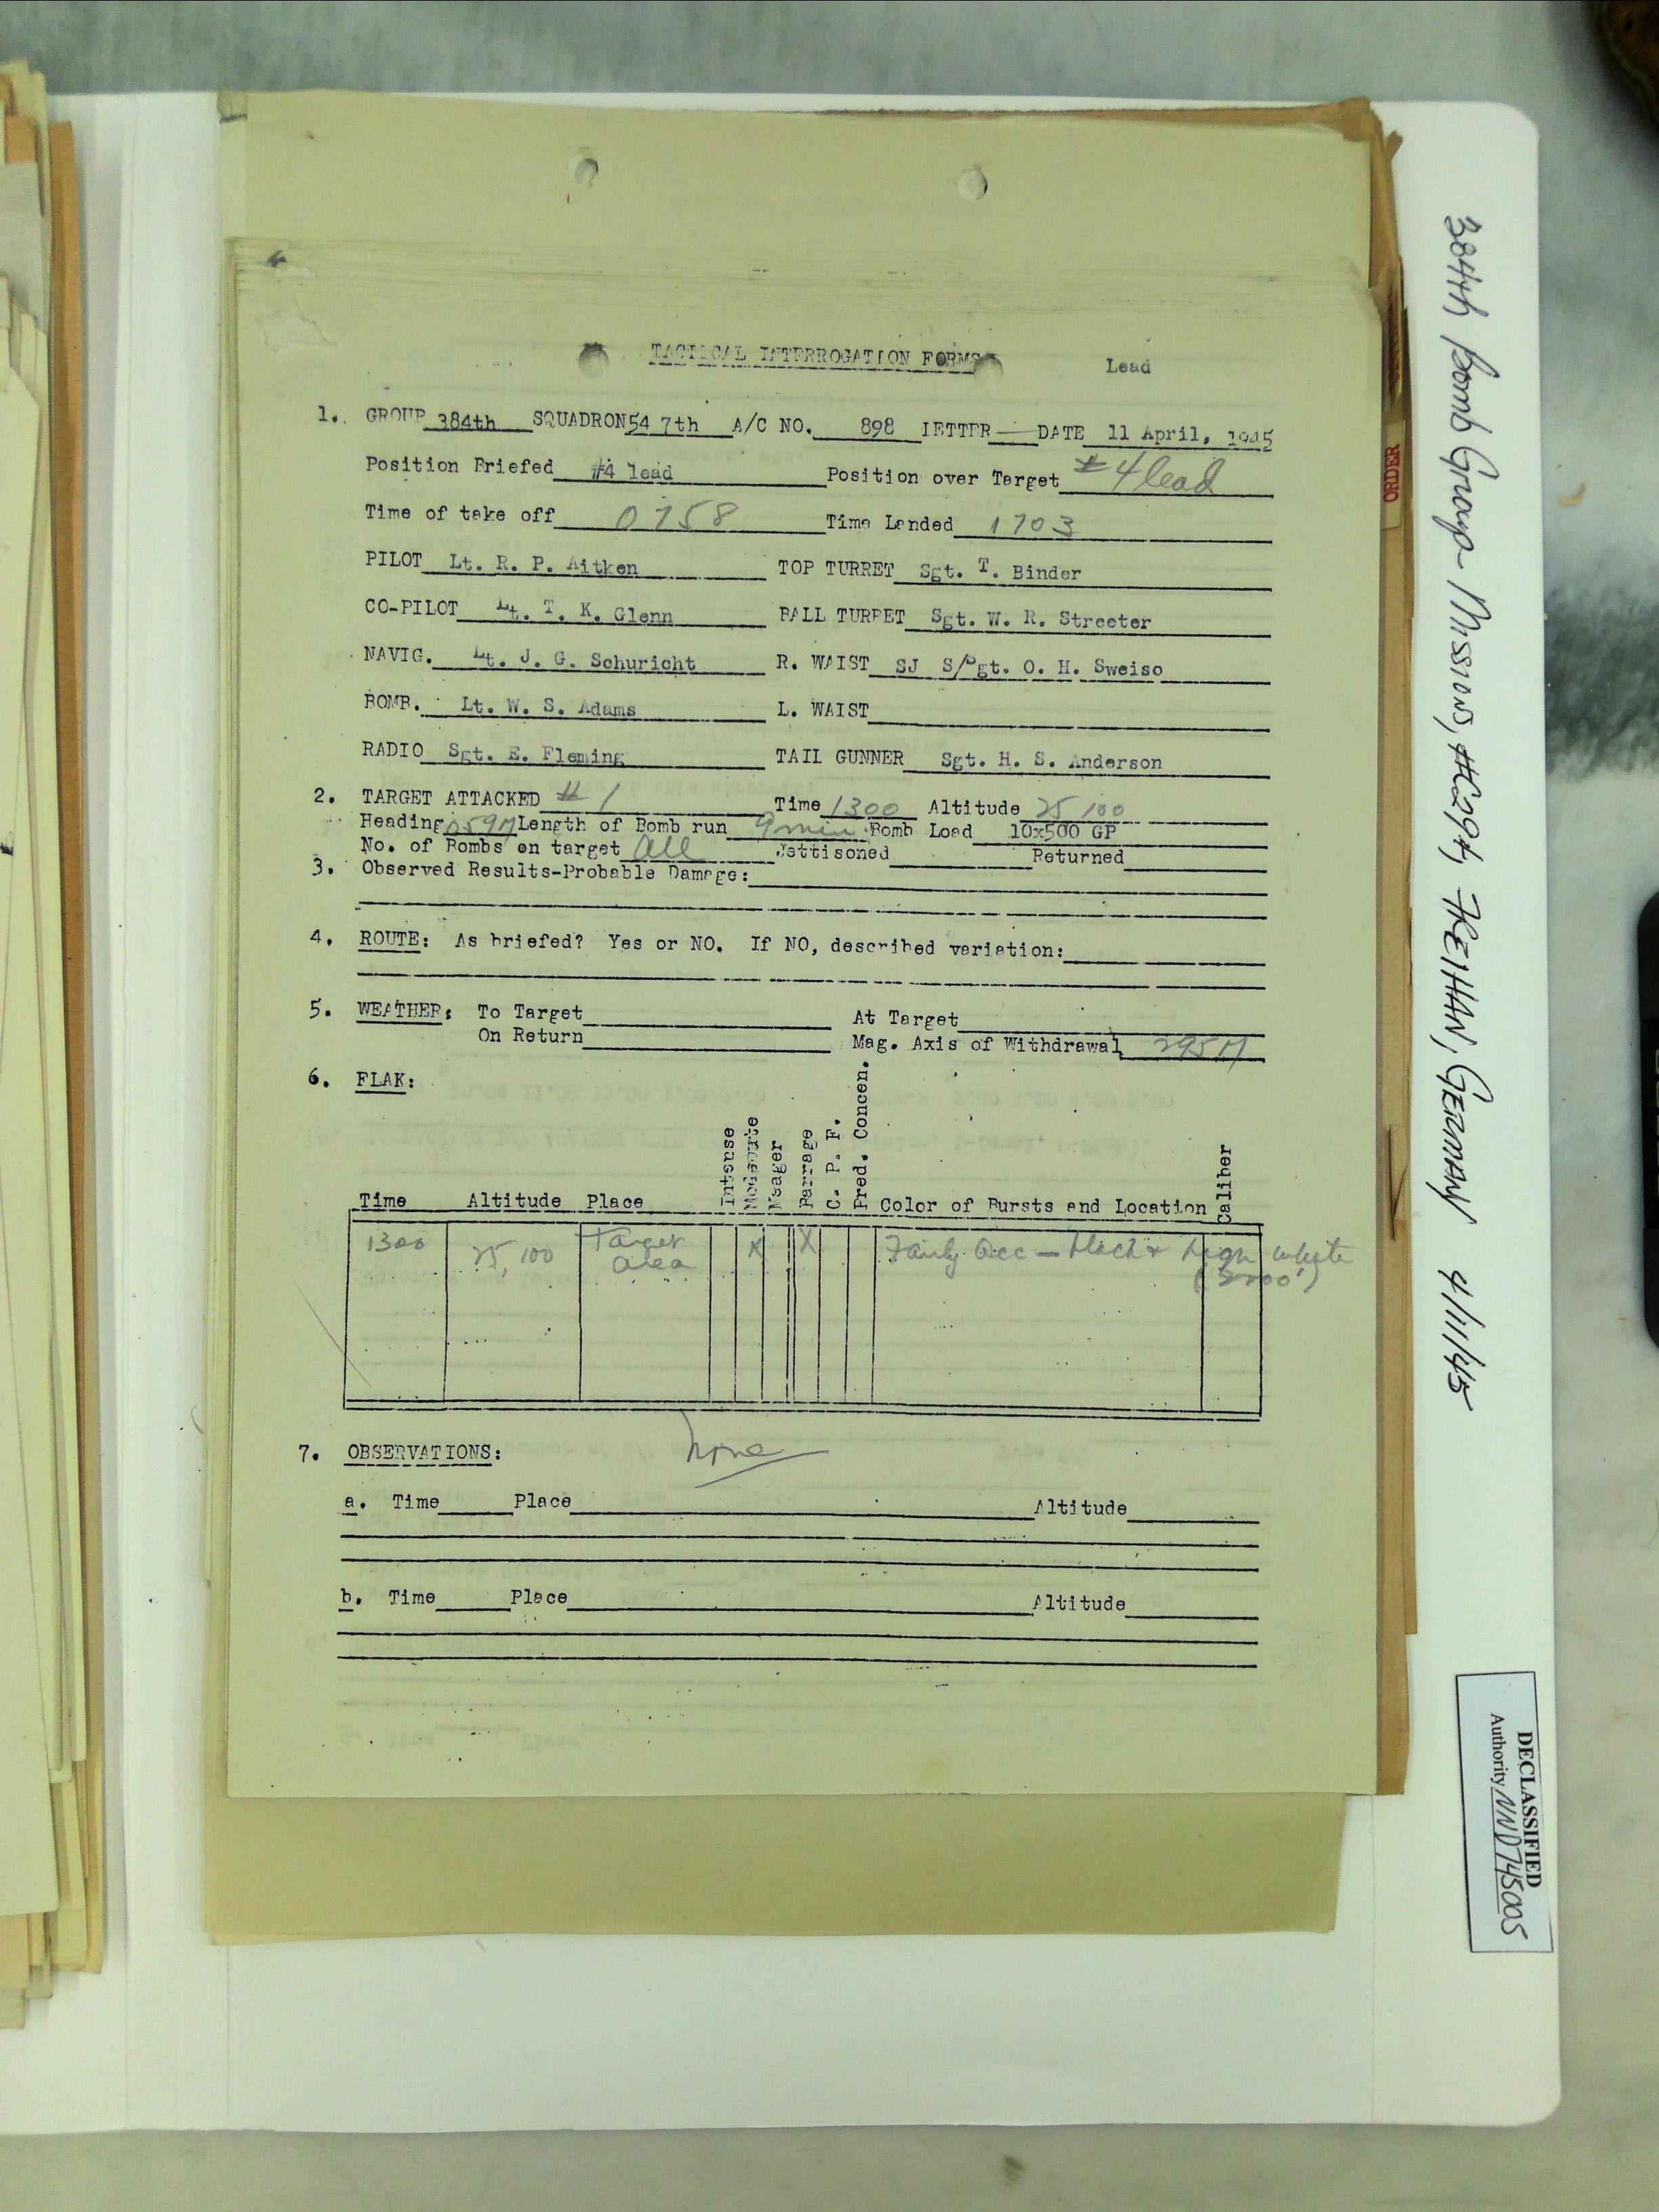 TACTICAL INTERROGATION FORMS Lead
1. GROUP 384th SQUADRON 547th A/C NO. 898 LETTER — DATE 11 April, 1945
Position Briefed #4 lead Position over Target #4 lead
Time of take off 0758 Time Landed 1703
PILOT Lt. R. P. Aitken TOP TURRET Sgt. T. Binder
CO-PILOT Lt. T. K. Glenn BALL TURRET Sgt. W. R. Streeter
NAVIG. Lt. J. G. Schuricht R. WAIST SJ S/Sgt. O. H. Sweiso
BOMB. Lt. W. S. Adams L. WAIST
RADIO Sgt. E. Fleming TAIL GUNNER Sgt. H. S. Anderson
2. TARGET ATTACKED #1 Time 1300 Altitude 25 100
Heading 059M Length of Bomb run 9 min Bomb Load 10x500 GP
No. of Bombs on target All Jettisoned Returned
3. Observed Results-Probable Damage:
4. ROUTE: As briefed? Yes or NO. If NO, described variation:
5. WEATHER: To Target At Target
On Return Mag. Axis of Withdrawal 295M
6. FLAK:
Time Altitude Place Intense Moderate Meager Barrage C. P. F. Pred. Concen. Color of Bursts and Location Caliber
1300 25,100 Target area X X Fairly Acc — black & high white
7. OBSERVATIONS: None
a. Time Place Altitude
b. Time Place Altitude
ORDER
384th Bomb Group Mission, #294, FREIHAM, GERMANY 4/11/45
DECLASSIFIED
Authority NND745005